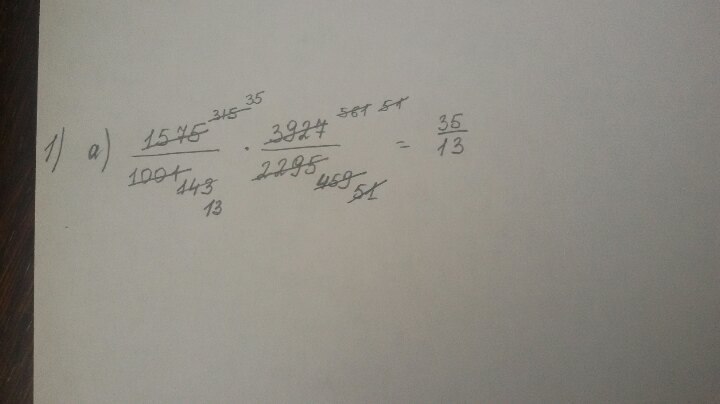 1) a) 1575/1001 · 3927/2295 = 35/13
315 35
561 51
143
13
459
51